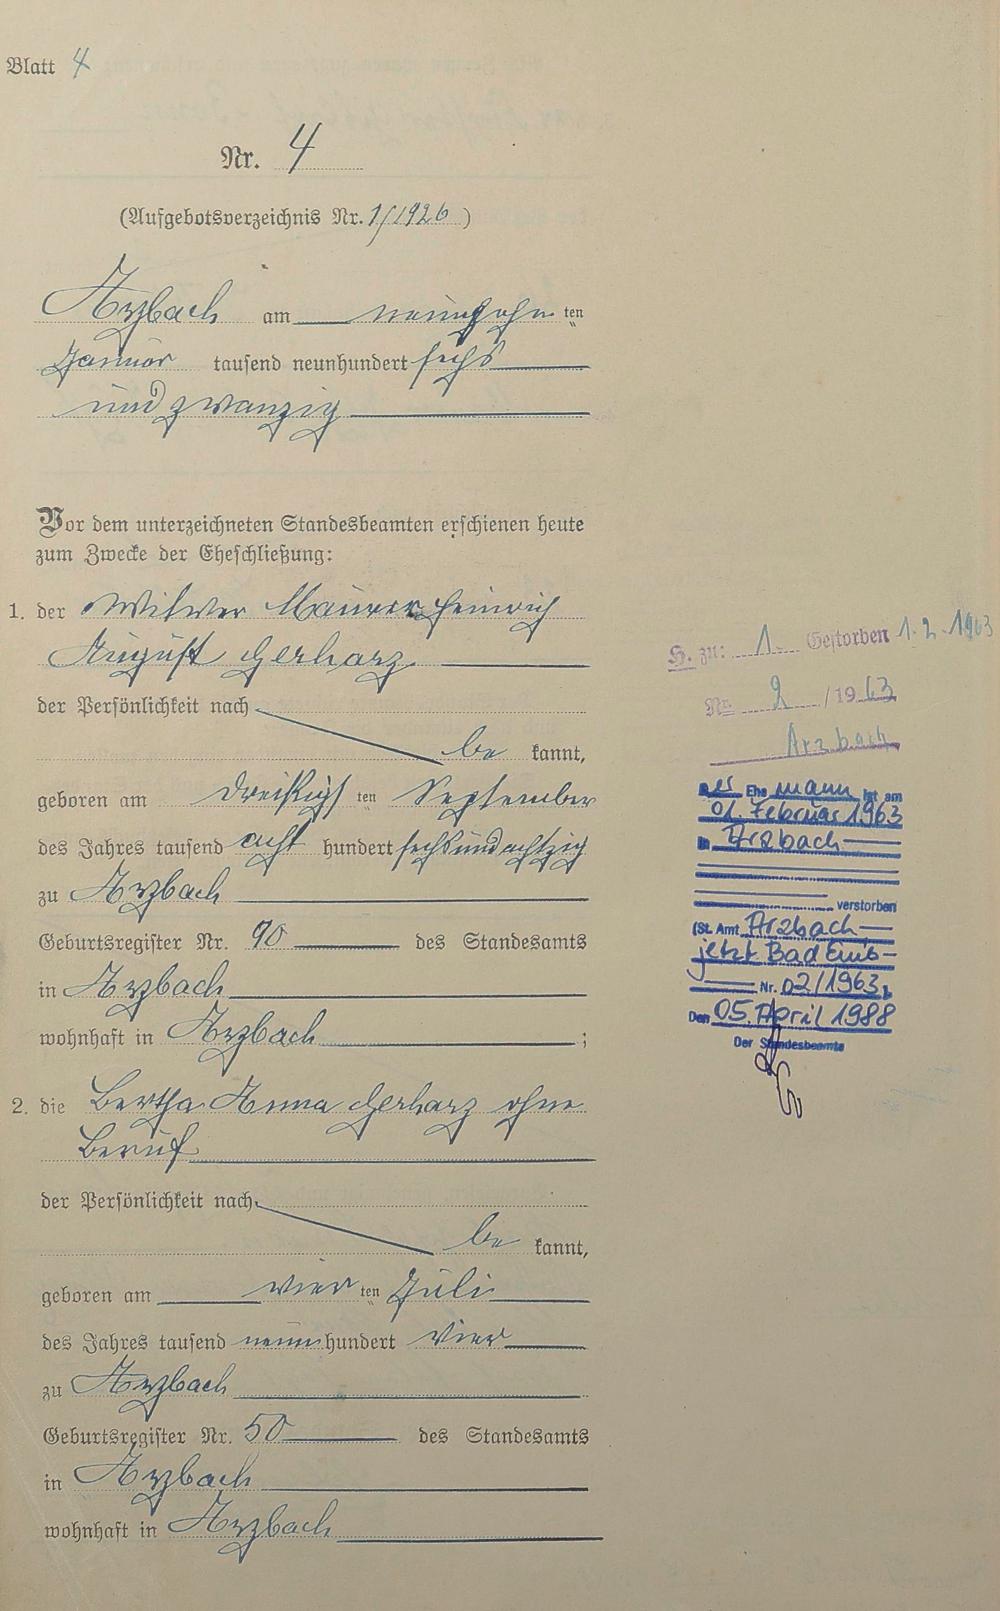 Blatt 4
Nr. 4
(Aufgebotsverzeichnis Nr. 1/1926)
Arzbach am neunzehn ten
Januar tausend neunhundert sechs
und zwanzig
Vor dem unterzeichneten Standesbeamten erschienen heute
zum Zwecke der Eheschließung:
1. der Witwer Maurer Heinrich
August Gerharz
der Persönlichkeit nach
be kannt,
geboren am dreißigs ten September
des Jahres tausend acht hundert sechsundachtzig
zu Arzbach
Geburtsregister Nr. 90 des Standesamts
in Arzbach
wohnhaft in Arzbach ;
2. die Bertha Anna Gerharz ohne
Beruf
der Persönlichkeit nach
be kannt,
geboren am vier ten Juli
des Jahres tausend neun hundert vier
zu Arzbach
Geburtsregister Nr. 50 des Standesamts
in Arzbach
wohnhaft in Arzbach
H. zu: 1. Gestorben 1.2.1963
Nr. 2 / 1963
Arzbach
Der Ehe mann ist am
01. Februar 1963
in Arzbach
verstorben
(St. Amt Arzbach
jetzt Bad Ems
Nr. 02/1963)
Den 05. April 1988
Der Standesbeamte